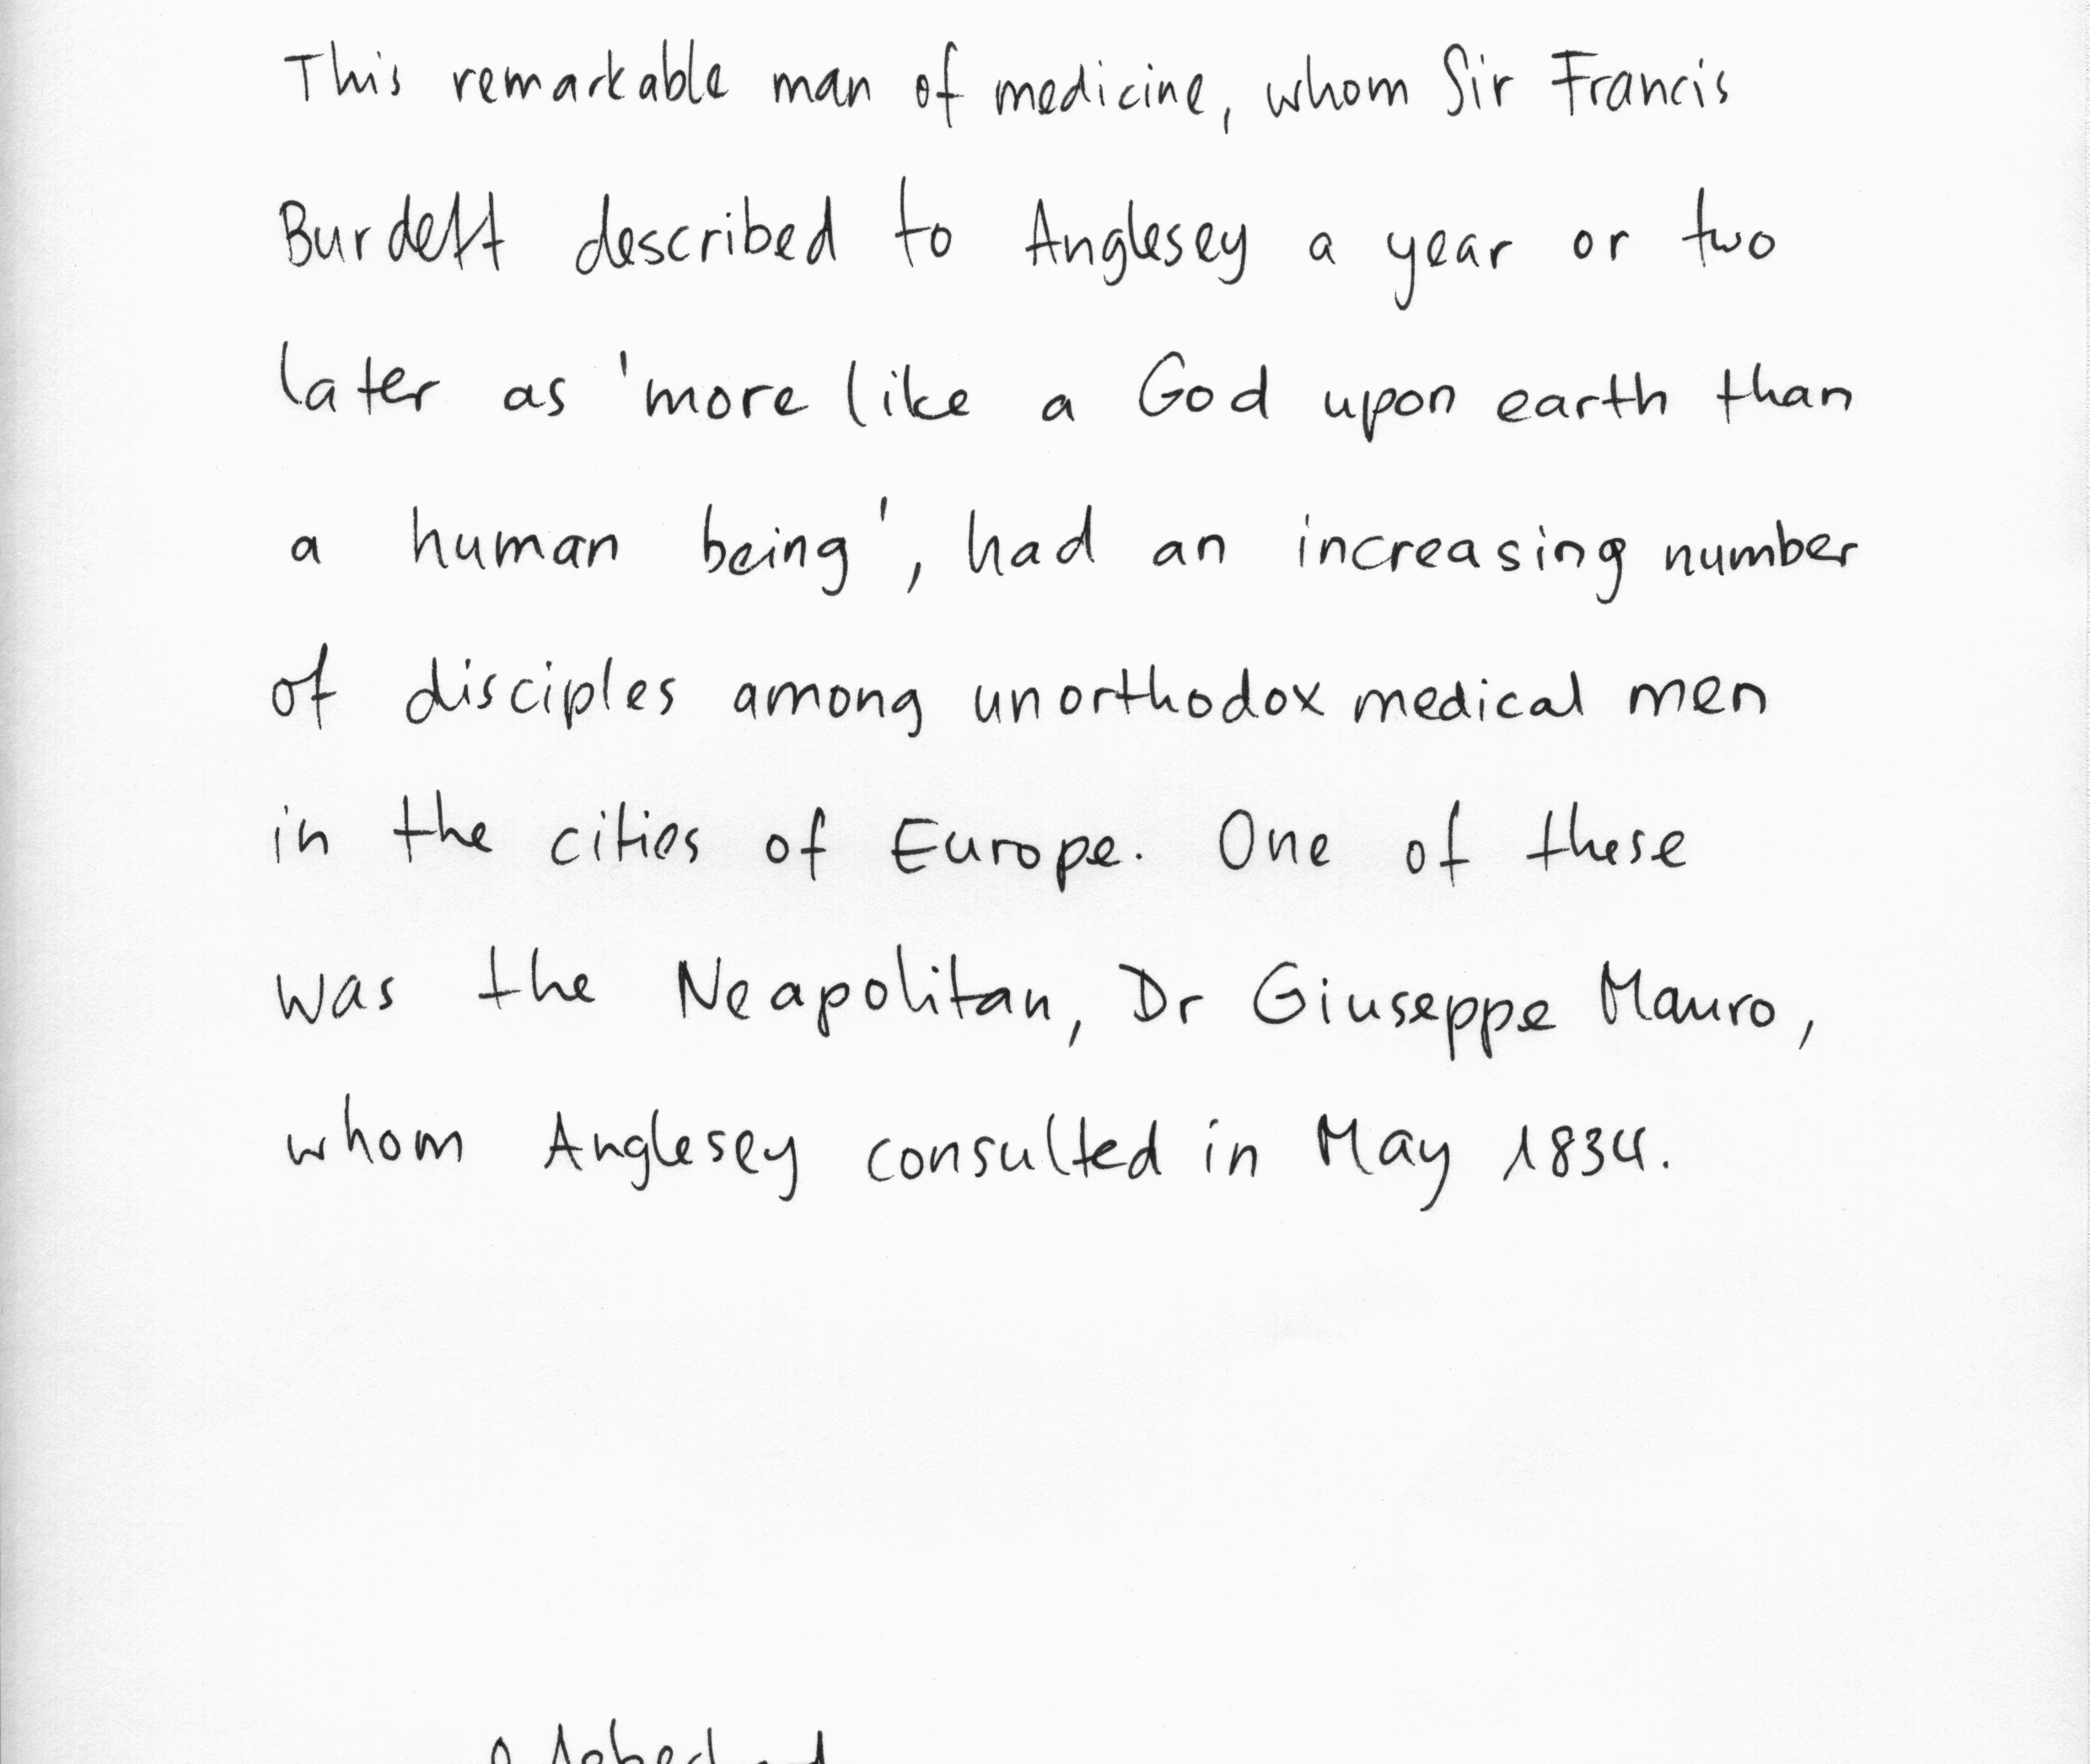 This remarkable man of medicine, whom Sir Francis
Burdett described to Anglesey a year or two
later as 'more like a God upon earth than
a human being', had an increasing number
of disciples among unorthodox medical men
in the cities of Europe. One of these
was the Neapolitan, Dr Giuseppe Mauro,
whom Anglesey consulted in May 1834.